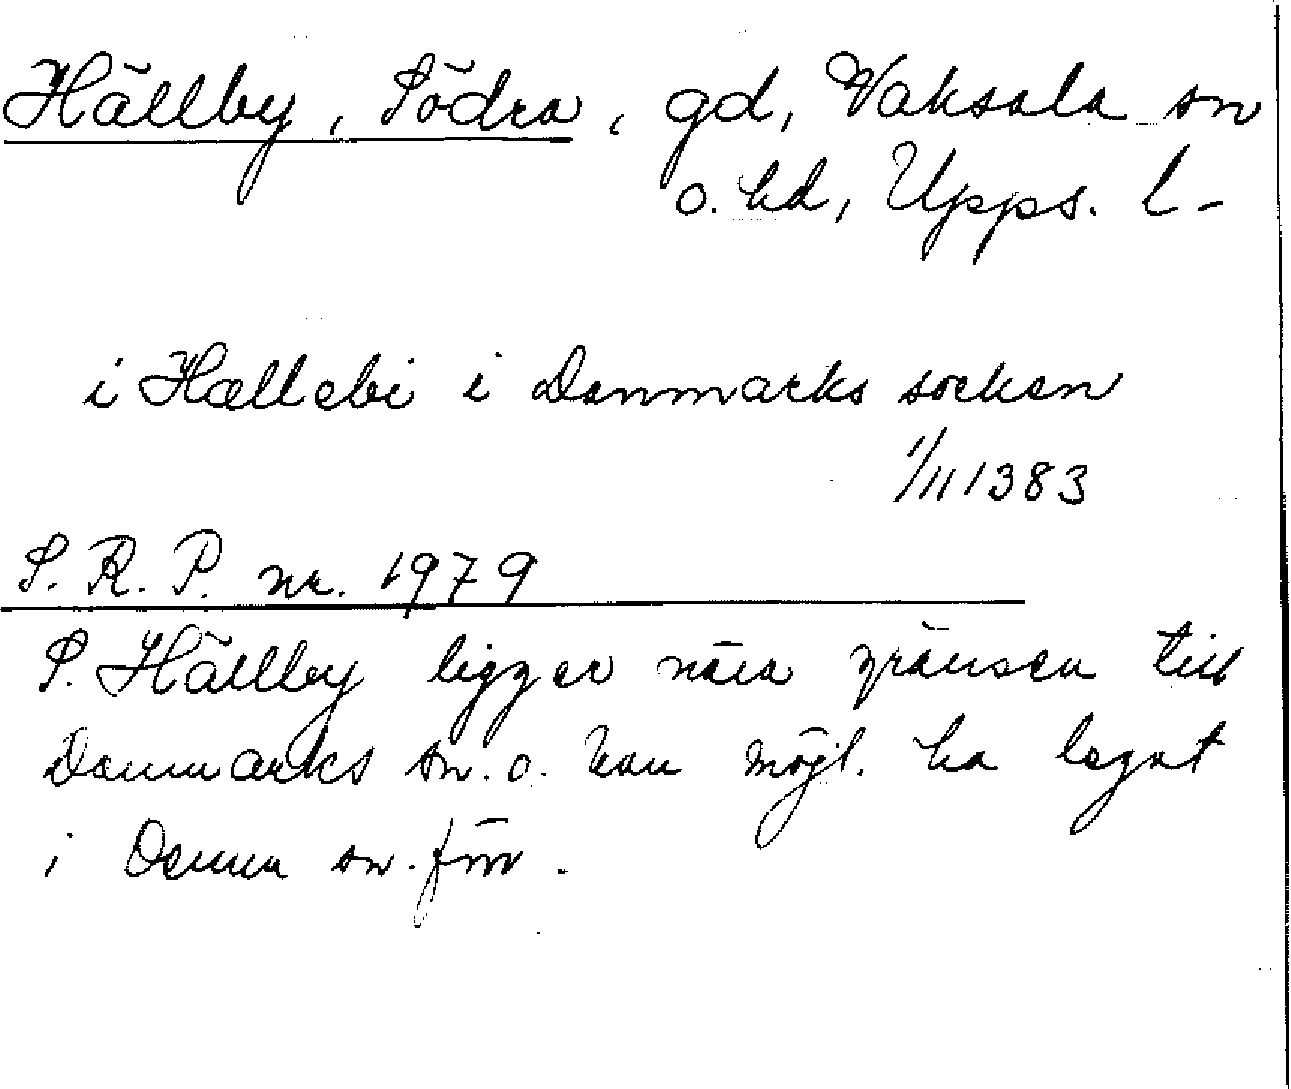 Hällby, Södra, gd, Vaksala sn
o. hd, Upps. l-
i Hællebi i Danmarks socken
1/11 1383
S. R. P. nr. 1979
S. Hällby ligger nära gränsen till
Danmarks sn. o. kan möjl. ha legat
i denna sn. förr.